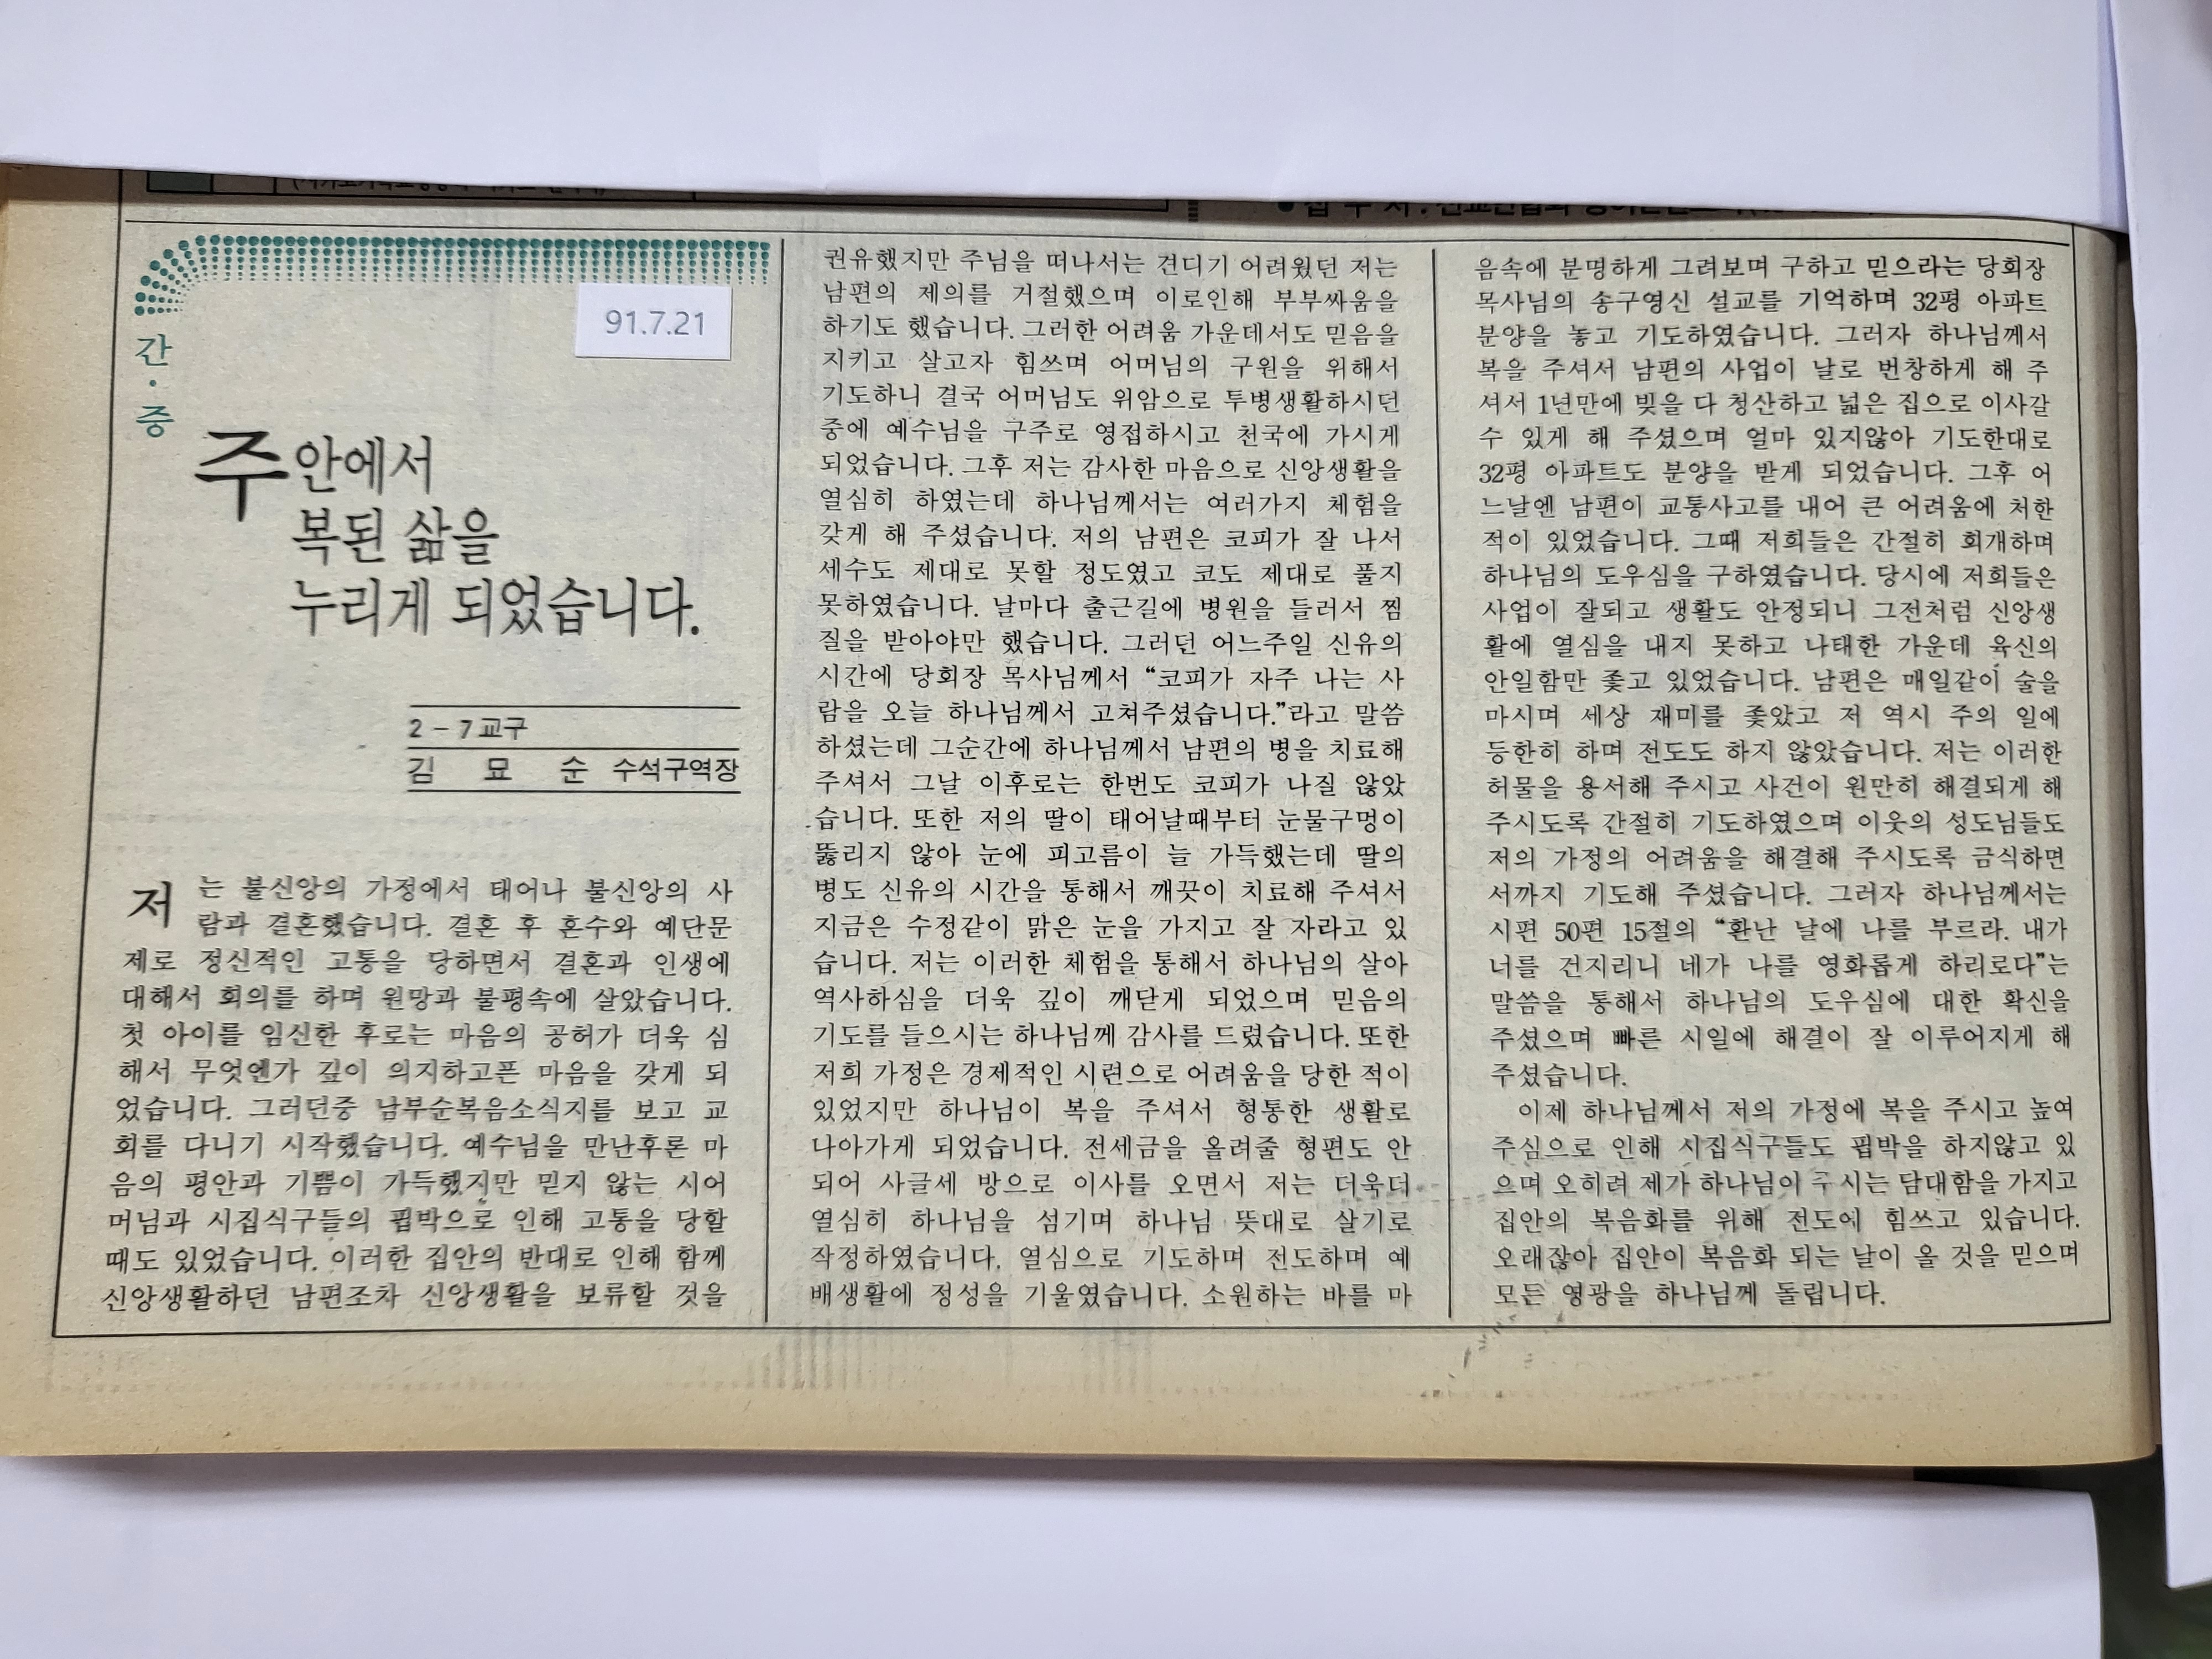 91.7.21
간·증
주안에서
복된 삶을
누리게 되었습니다.
2-7교구
김 묘 순 수석구역장
저는 불신앙의 가정에서 태어나 불신앙의 사
람과 결혼했습니다. 결혼 후 혼수와 예단문
제로 정신적인 고통을 당하면서 결혼과 인생에
대해서 회의를 하며 원망과 불평속에 살았습니다.
첫 아이를 임신한 후로는 마음의 공허가 더욱 심
해서 무엇엔가 깊이 의지하고픈 마음을 갖게 되
었습니다. 그러던중 남부순복음소식지를 보고 교
회를 다니기 시작했습니다. 예수님을 만난후론 마
음의 평안과 기쁨이 가득했지만 믿지 않는 시어
머님과 시집식구들의 핍박으로 인해 고통을 당할
때도 있었습니다. 이러한 집안의 반대로 인해 함께
신앙생활하던 남편조차 신앙생활을 보류할 것을
권유했지만 주님을 떠나서는 견디기 어려웠던 저는
남편의 제의를 거절했으며 이로인해 부부싸움을
하기도 했습니다. 그러한 어려움 가운데서도 믿음을
지키고 살고자 힘쓰며 어머님의 구원을 위해서
기도하니 결국 어머님도 위암으로 투병생활하시던
중에 예수님을 구주로 영접하시고 천국에 가시게
되었습니다. 그후 저는 감사한 마음으로 신앙생활을
열심히 하였는데 하나님께서는 여러가지 체험을
갖게 해 주셨습니다. 저의 남편은 코피가 잘 나서
세수도 제대로 못할 정도였고 코도 제대로 풀지
못하였습니다. 날마다 출근길에 병원을 들러서 찜
질을 받아야만 했습니다. 그러던 어느주일 신유의
시간에 당회장 목사님께서 “코피가 자주 나는 사
람을 오늘 하나님께서 고쳐주셨습니다.”라고 말씀
하셨는데 그순간에 하나님께서 남편의 병을 치료해
주셔서 그날 이후로는 한번도 코피가 나질 않았
습니다. 또한 저의 딸이 태어날때부터 눈물구멍이
뚫리지 않아 눈에 피고름이 늘 가득했는데 딸의
병도 신유의 시간을 통해서 깨끗이 치료해 주셔서
지금은 수정같이 맑은 눈을 가지고 잘 자라고 있
습니다. 저는 이러한 체험을 통해서 하나님의 살아
역사하심을 더욱 깊이 깨닫게 되었으며 믿음의
기도를 들으시는 하나님께 감사를 드렸습니다. 또한
저희 가정은 경제적인 시련으로 어려움을 당한 적이
있었지만 하나님이 복을 주셔서 형통한 생활로
나아가게 되었습니다. 전세금을 올려줄 형편도 안
되어 사글세 방으로 이사를 오면서 저는 더욱더
열심히 하나님을 섬기며 하나님 뜻대로 살기로
작정하였습니다. 열심으로 기도하며 전도하며 예
배생활에 정성을 기울였습니다. 소원하는 바를 마
음속에 분명하게 그려보며 구하고 믿으라는 당회장
목사님의 송구영신 설교를 기억하며 32평 아파트
분양을 놓고 기도하였습니다. 그러자 하나님께서
복을 주셔서 남편의 사업이 날로 번창하게 해 주
셔서 1년만에 빚을 다 청산하고 넓은 집으로 이사갈
수 있게 해 주셨으며 얼마 있지않아 기도한대로
32평 아파트도 분양을 받게 되었습니다. 그후 어
느날엔 남편이 교통사고를 내어 큰 어려움에 처한
적이 있었습니다. 그때 저희들은 간절히 회개하며
하나님의 도우심을 구하였습니다. 당시에 저희들은
사업이 잘되고 생활도 안정되니 그전처럼 신앙생
활에 열심을 내지 못하고 나태한 가운데 육신의
안일함만 좇고 있었습니다. 남편은 매일같이 술을
마시며 세상 재미를 좇았고 저 역시 주의 일에
등한히 하며 전도도 하지 않았습니다. 저는 이러한
허물을 용서해 주시고 사건이 원만히 해결되게 해
주시도록 간절히 기도하였으며 이웃의 성도님들도
저의 가정의 어려움을 해결해 주시도록 금식하면
서까지 기도해 주셨습니다. 그러자 하나님께서는
시편 50편 15절의 “환난 날에 나를 부르라. 내가
너를 건지리니 네가 나를 영화롭게 하리로다”는
말씀을 통해서 하나님의 도우심에 대한 확신을
주셨으며 빠른 시일에 해결이 잘 이루어지게 해
주셨습니다.
이제 하나님께서 저의 가정에 복을 주시고 높여
주심으로 인해 시집식구들도 핍박을 하지않고 있
으며 오히려 제가 하나님이 주시는 담대함을 가지고
집안의 복음화를 위해 전도에 힘쓰고 있습니다.
오래잖아 집안이 복음화 되는 날이 올 것을 믿으며
모든 영광을 하나님께 돌립니다.